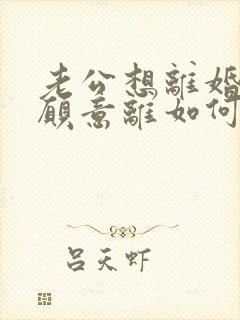 老公想離婚
願意離如何
呂天虾